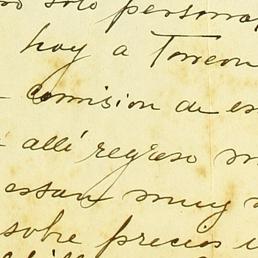 solo persona
hoy a Torreon
comision de es
allí regreso m
estan muy
sobre precios